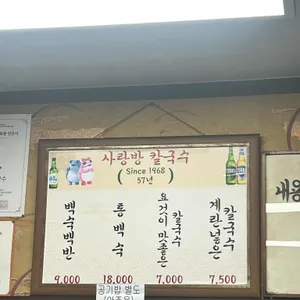 사랑방 칼국수
(Since 1968
57년)
백숙백반
9,000
통백숙
18,000
칼국수
요것이 맛좋은
7,000
칼국수
계란넣은
7,500
공기밥 별도